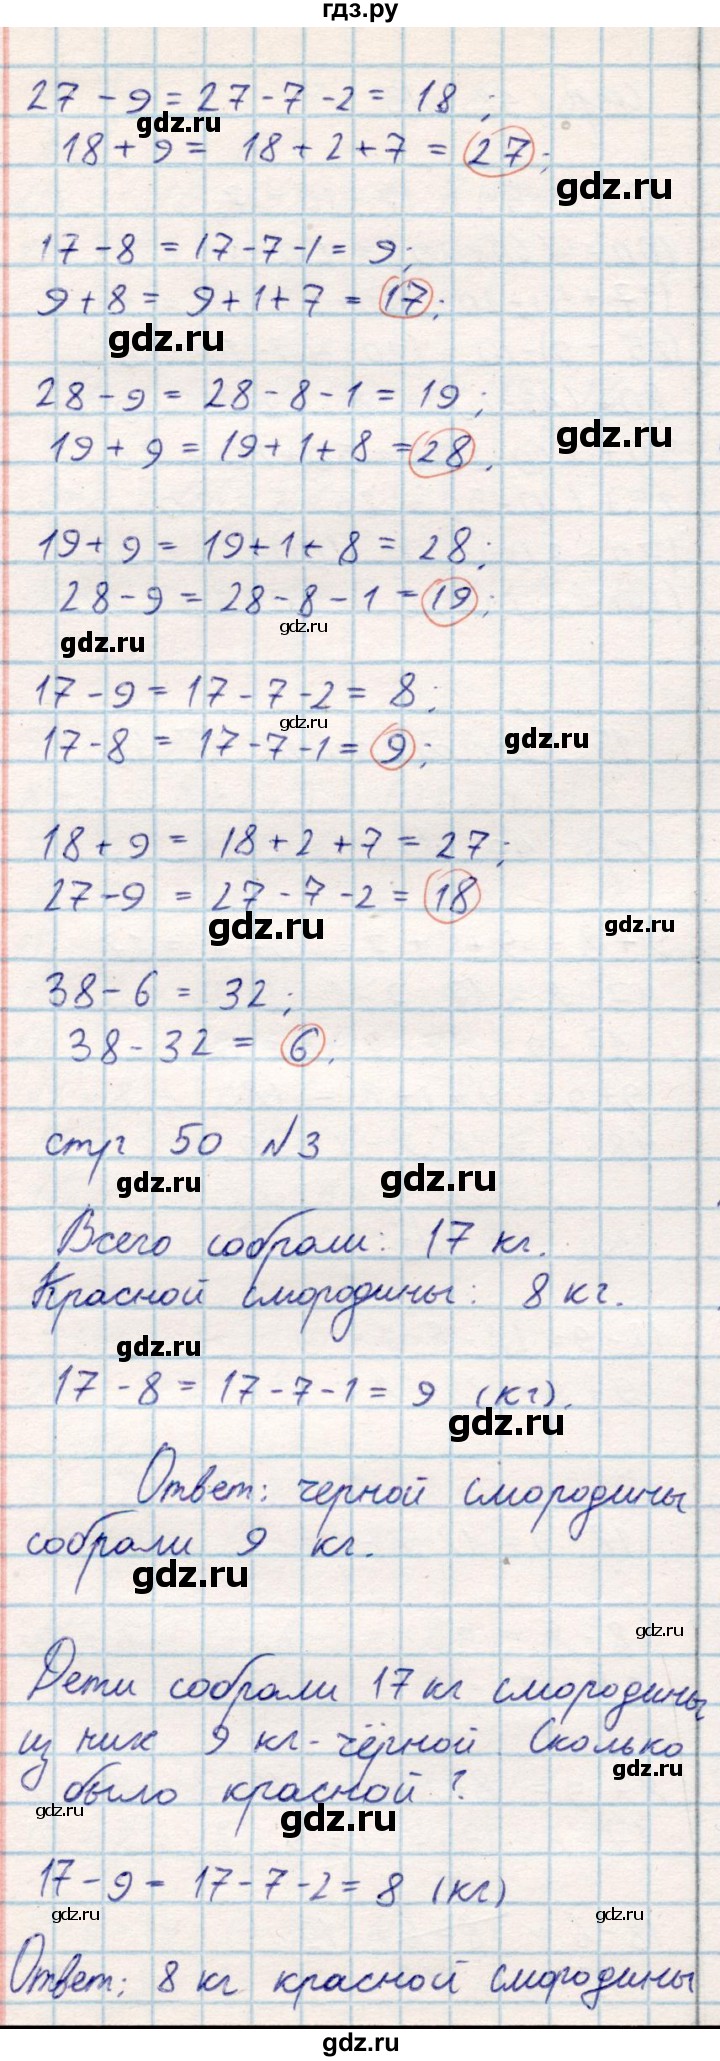 гдз.ру
27 - 9 = 27 - 7 - 2 = 18 ;
gdz.ru
18 + 9 = 18 + 2 + 7 = 27 ;
gdz.ru
17 - 8 = 17 - 7 - 1 = 9 ;
9 + 8 = 9 + 1 + 7 = 17 ;
gdz.ru
28 - 9 = 28 - 8 - 1 = 19 ;
gdz.ru
19 + 9 = 19 + 1 + 8 = 28 .
19 + 9 = 19 + 1 + 8 = 28 ;
28 - 9 = 28 - 8 - 1 = 19 ;
gdz.ru
gdz.ru
17 - 9 = 17 - 7 - 2 = 8 ;
gdz.ru
17 - 8 = 17 - 7 - 1 = 9 ;
gdz.ru
18 + 9 = 18 + 2 + 7 = 27 ;
27 - 9 = 27 - 7 - 2 = 18
gdz.ru gdz.ru
38 - 6 = 32 ;
38 - 32 = 6 .
стр 50 №3
gdz.ru gdz.ru
Всего собрали: 17 кг.
Красной смородины: 8 кг.
gdz.ru
17 - 8 = 17 - 7 - 1 = 9 (кг).
gdz.ru
Ответ: черной смородины
собрали 9 кг.
gdz.ru
gdz.ru
Дети собрали 17 кг смородины
из них 9 кг - чёрной. Сколько
gdz.ru
было красной?
gdz.ru gdz.ru
17 - 9 = 17 - 7 - 2 = 8 (кг)
gdz.ru gdz.ru
Ответ: 8 кг красной смородины
gdz.ru